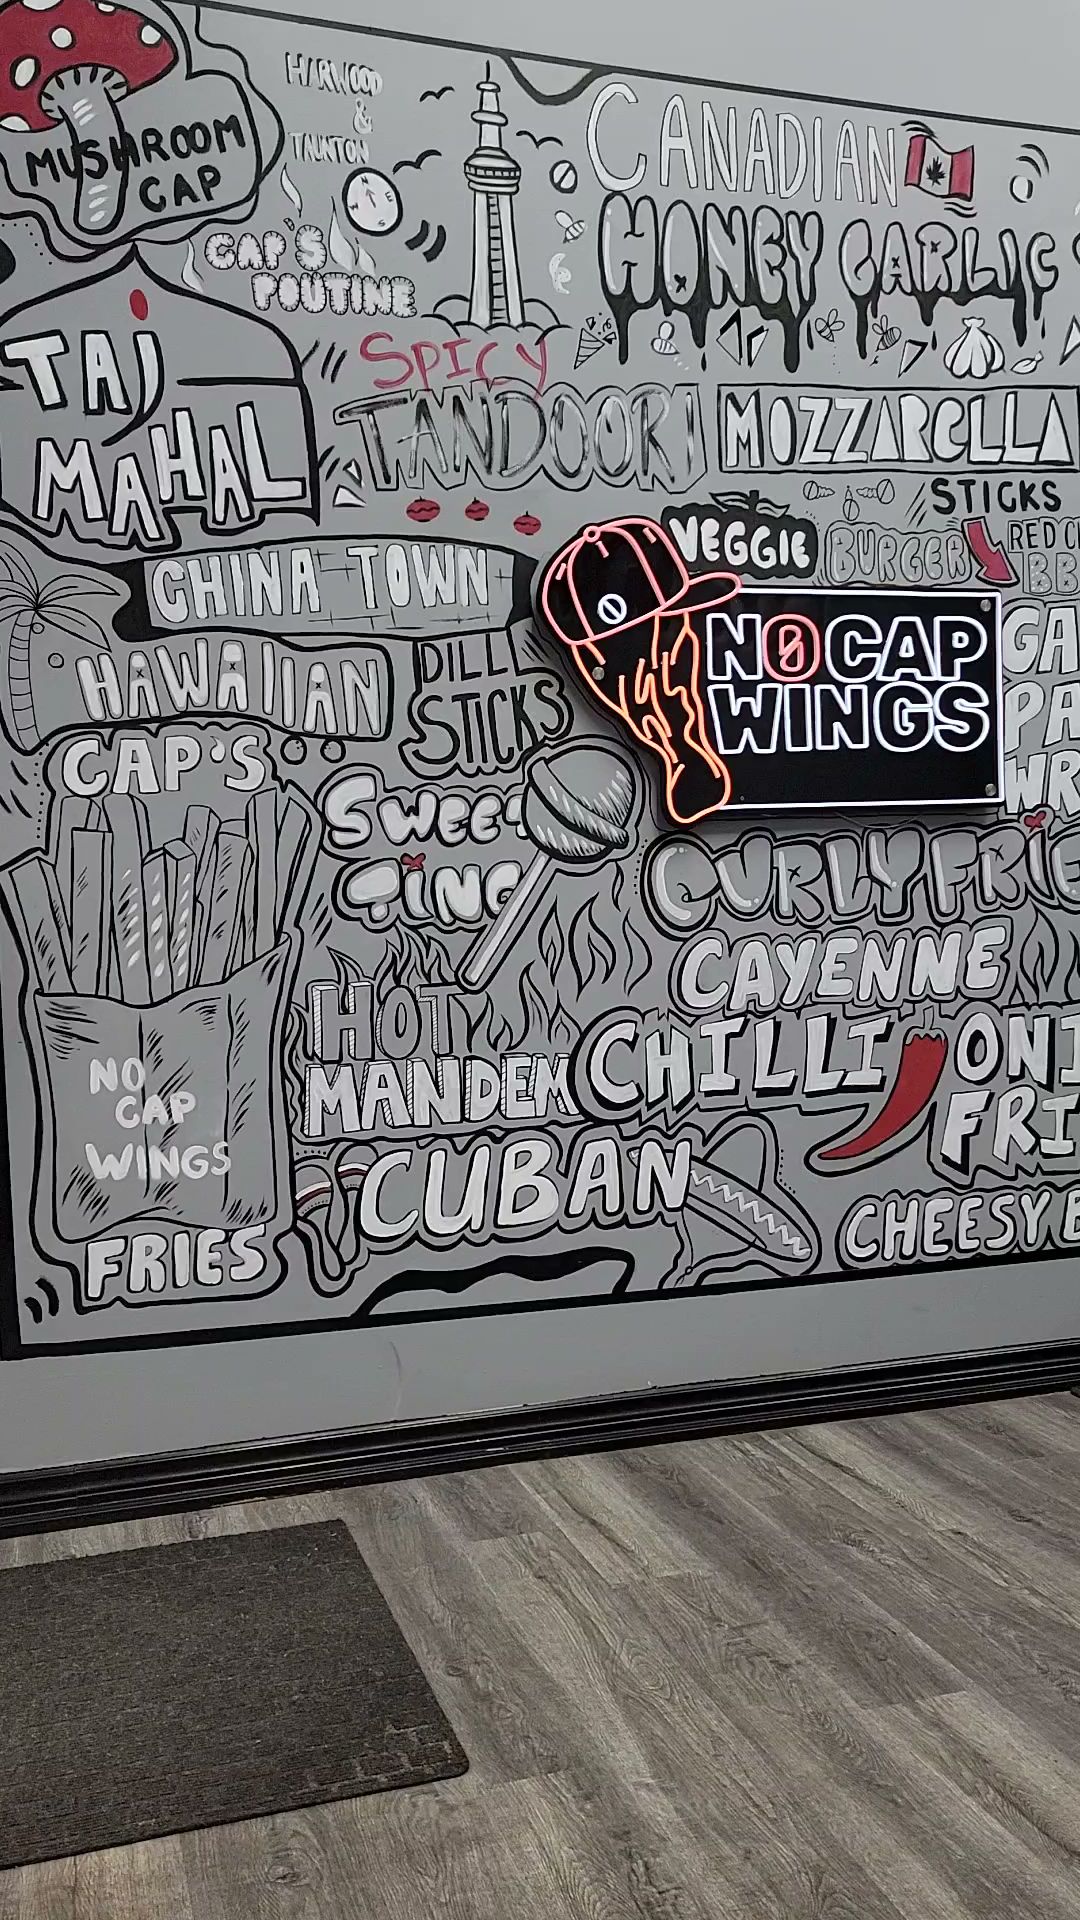 MUSHROOM
CAP
HARWOOD
&
TAUNTON
CAP'S
POUTINE
CANADIAN
HONEY GARLIC
TAJ
MAHAL
SPICY
TANDOORI
MOZZARELLA
STICKS
VEGGIE
BURGER
RED
CHINA TOWN
HAWAIIAN
DILL
STICKS
NO CAP
WINGS
CAP'S
NO
CAP
WINGS
FRIES
SWEET
TING
CURLY
CAYENNE
HOT
MANDEM
CHILLI
CUBAN
CHEESY